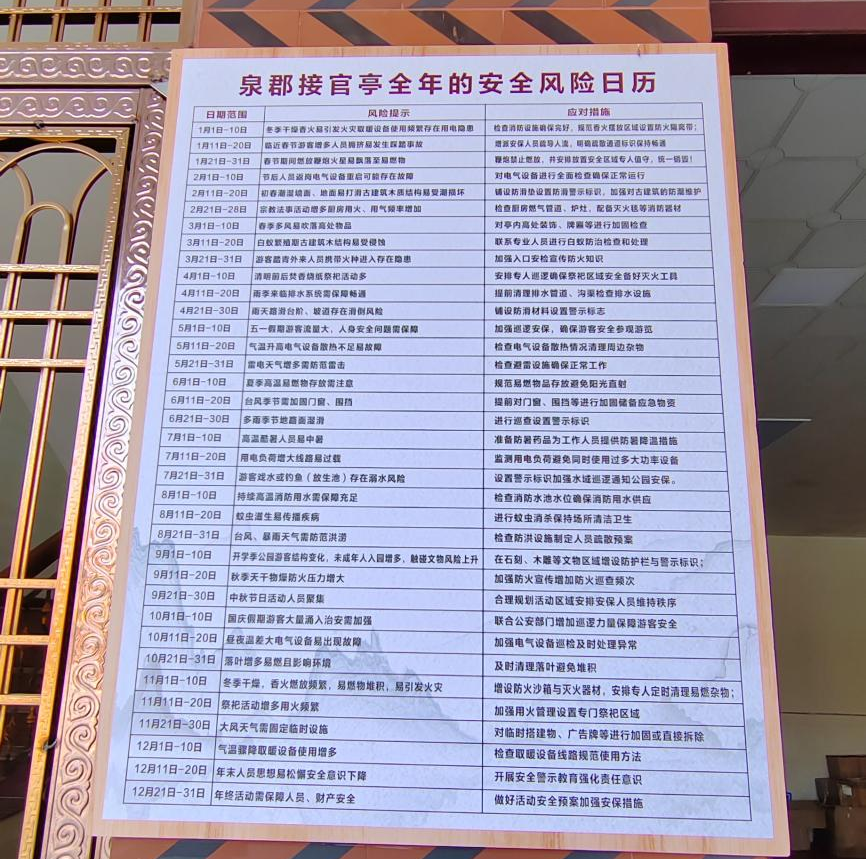 泉郡接官亭全年的安全风险日历
日期范围 风险提示 应对措施
1月1日-10日 冬季干燥香火易引发火灾取暖设备使用频繁存在用电隐患 检查消防设施确保完好，规范香火摆放区域设置防火隔离带；
1月11日-20日 临近春节游客增多人员拥挤易发生踩踏事故 增派安保人员疏导人流，明确疏散通道标识保持畅通
1月21日-31日 春节期间燃放鞭炮火星易飘落至易燃物 鞭炮禁止燃放，并安排放置安全区域专人值守，统一销毁！
2月1日-10日 节后人员返岗电气设备重启可能存在故障 对电气设备进行全面检查确保正常运行
2月11日-20日 初春潮湿墙面、地面易打滑古建筑木质结构易受潮损坏 铺设防滑垫设置防滑警示标识，加强对古建筑的防潮维护
2月21日-28日 宗教法事活动增多厨房用火、用气频率增加 检查厨房燃气管道、炉灶，配备灭火毯等消防器材
3月1日-10日 春季多风易吹落高处物品 对亭内高处装饰、牌匾等进行加固检查
3月11日-20日 白蚁繁殖期古建筑木结构易受侵蚀 联系专业人员进行白蚁防治检查和处理
3月21日-31日 游客踏青外来人员携带火种进入存在隐患 加强入口安检宣传防火知识
4月1日-10日 清明前后焚香烧纸祭祀活动多 安排专人巡逻确保祭祀区域安全备好灭火工具
4月11日-20日 雨季来临排水系统需保障畅通 提前清理排水管道、沟渠检查排水设施
4月21日-30日 雨天路滑台阶、坡道存在滑倒风险 铺设防滑材料设置警示标志
5月1日-10日 五一假期游客流量大，人身安全问题需保障 加强巡逻安保，确保游客安全参观游览
5月11日-20日 气温升高电气设备散热不足易故障 检查电气设备散热情况清理周边杂物
5月21日-31日 雷电天气增多需防范雷击 检查避雷设施确保正常工作
6月1日-10日 夏季高温易燃物存放需注意 规范易燃物品存放避免阳光直射
6月11日-20日 台风季节需加固门窗、围挡 提前对门窗、围挡等进行加固储备应急物资
6月21日-30日 多雨季节地路面湿滑 进行巡查设置警示标识
7月1日-10日 高温酷暑人员易中暑 准备防暑药品为工作人员提供防暑降温措施
7月11日-20日 用电负荷增大线路易过载 监测用电负荷避免同时使用过多大功率设备
7月21日-31日 游客戏水或钓鱼（放生池）存在溺水风险 设置警示标识加强水域巡逻通知公园安保。
8月1日-10日 持续高温消防用水需保障充足 检查消防水池水位确保消防用水供应
8月11日-20日 蚊虫滋生易传播疾病 进行蚊虫消杀保持场所清洁卫生
8月21日-31日 台风、暴雨天气需防范洪涝 检查防洪设施制定人员疏散预案
9月1日-10日 开学季公园游客结构变化，未成年人入园增多，触碰文物风险上升 在石刻、木雕等文物区域增设防护栏与警示标识；
9月11日-20日 秋季天干物燥防火压力增大 加强防火宣传增加防火巡查频次
9月21日-30日 中秋节日活动人员聚集 合理规划活动区域安排安保人员维持秩序
10月1日-10日 国庆假期游客大量涌入治安需加强 联合公安部门增加巡逻力量保障游客安全
10月11日-20日 昼夜温差大电气设备易出现故障 加强电气设备巡检及时处理异常
10月21日-31日 落叶增多易燃且影响环境 及时清理落叶避免堆积
11月1日-10日 冬季干燥，香火燃放频繁，易燃物堆积，易引发火灾 增设防火沙箱与灭火器材，安排专人定时清理易燃杂物；
11月11日-20日 祭祀活动增多用火频繁 加强用火管理设置专门祭祀区域
11月21日-30日 大风天气需固定临时设施 对临时搭建物、广告牌等进行加固或直接拆除
12月1日-10日 气温骤降取暖设备使用增多 检查取暖设备线路规范使用方法
12月11日-20日 年末人员思想易松懈安全意识下降 开展安全警示教育强化责任意识
12月21日-31日 年终活动需保障人员、财产安全 做好活动安全预案加强安保措施